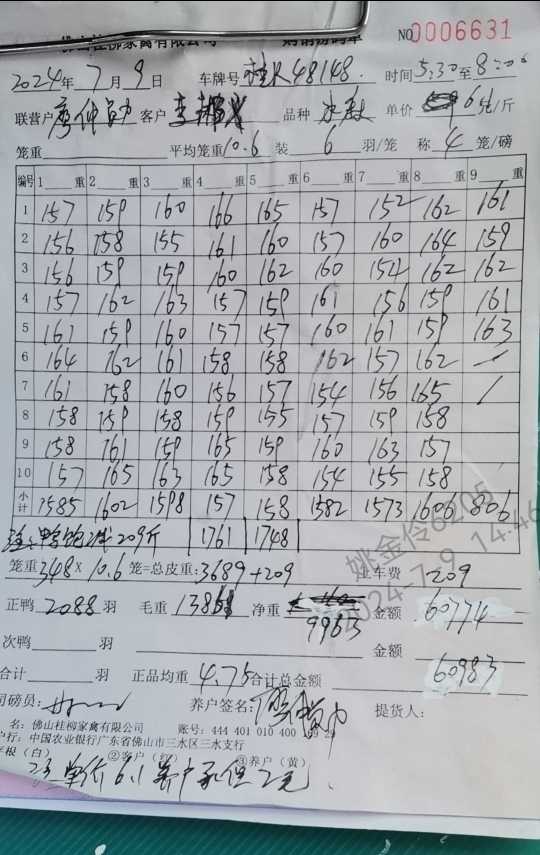 佛山桂柳家禽有限公司 购销磅码单 NO 0006631
2024年 7月 9日 车牌号 桂K48148. 时间 5:30至8:00
联营户 客户 品种 单价 6元/斤
笼重 平均笼重 10.6 装 6 羽/笼 称 4 笼/磅
编号 1 重 2 重 3 重 4 重 5 重 6 重 7 重 8 重 9 重
1 157 159 160 166 165 157 152 162 161
2 156 158 155 161 160 157 160 164 159
3 156 159 159 160 162 160 154 162 162
4 157 162 163 157 159 161 156 159 161
5 161 159 160 157 157 160 161 159 163
6 164 162 161 158 158 162 157 162 /
7 161 158 160 156 157 154 156 165 /
8 158 159 158 159 155 157 159 158
9 158 161 159 165 159 160 163 157
10 157 165 163 165 158 154 155 158
小计 1585 1602 1598 157 158 1582 1573 1606 806
注:鸭饱减209斤 1761 1748
笼重 348 × 10.6 笼=总皮重: 3689+209 车费 209
正鸭 2088 羽 毛重 净重 9963 金额 60774
次鸭 羽 金额 60983
合计 羽 正品均重 4.75 合计总金额
司磅员: 养户签名: 提货人:
名: 佛山桂柳家禽有限公司 账号: 444 401 010 400
户行: 中国农业银行广东省佛山市三水区三水支行
存根(白) ②客户(红) ③养户(黄)
注单价6.1养户承担2元
姚金伶6205
2024-7-9 14:46